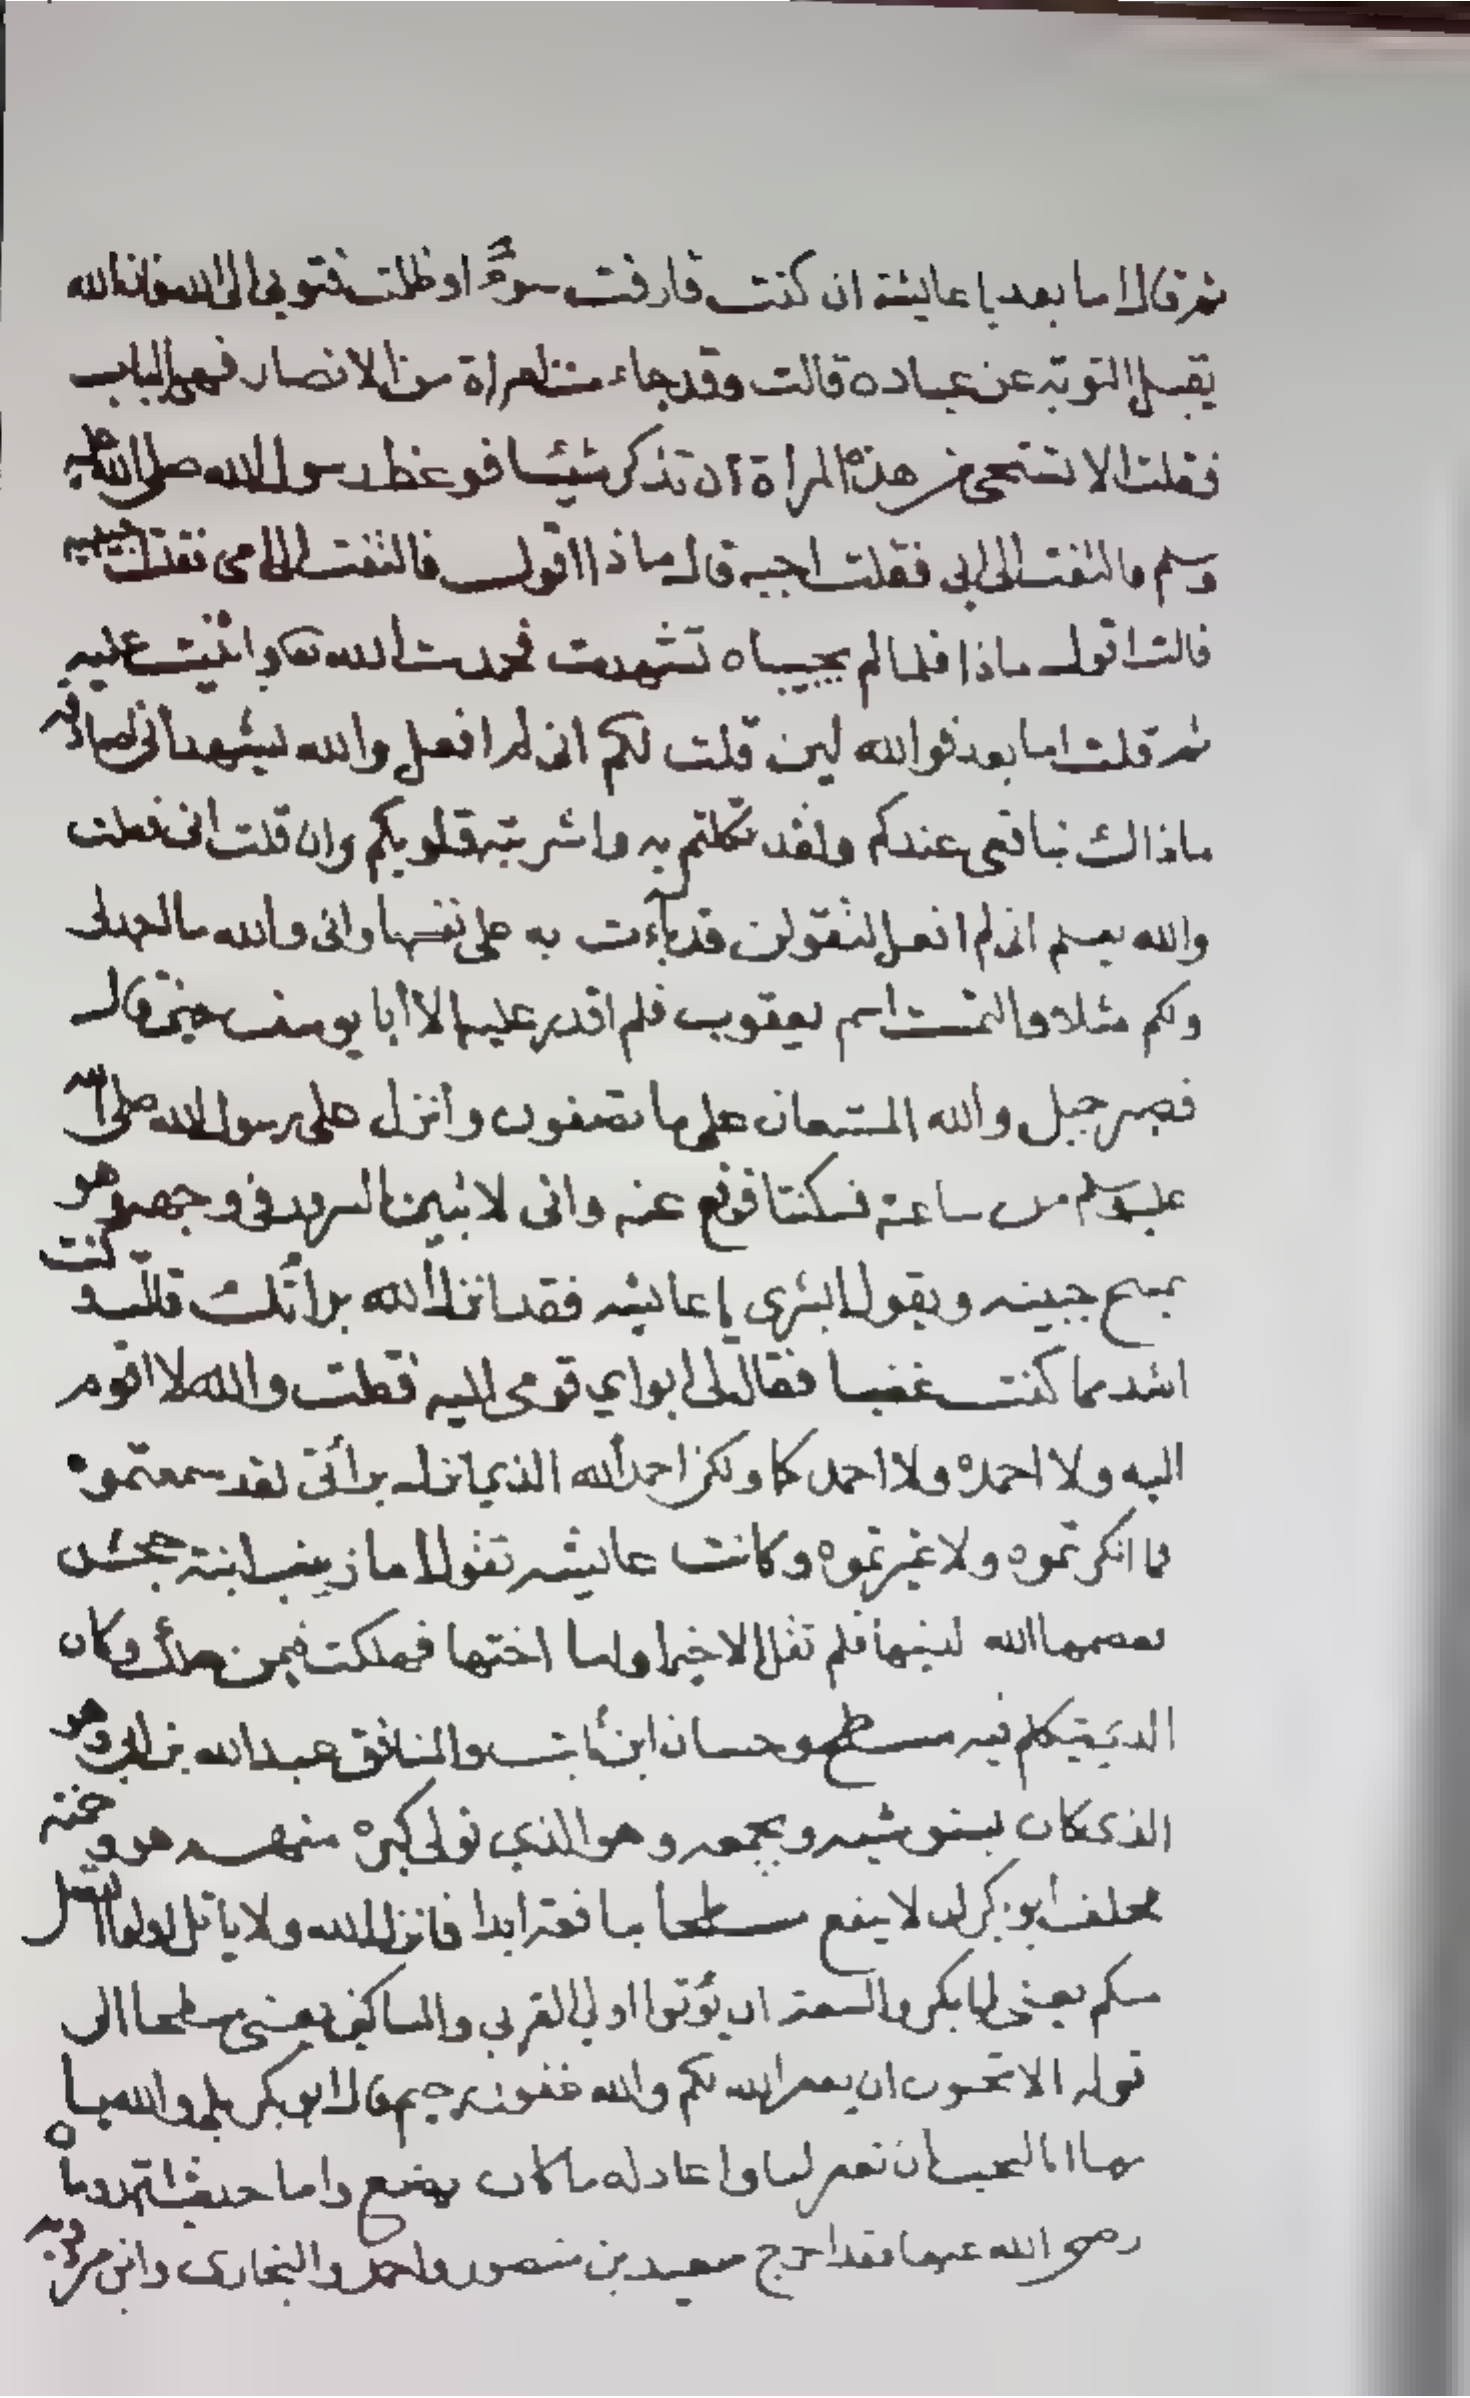 ثم قال اما بعد يا عايشة ان كنت قارفت سوءً او ظلمت فتوبي الى الله فان الله
يقبل التوبة عن عباده قالت وقد جاءت امراة من الانصار فهي بالباب
فقلت الا تستحى من هذه المرأة ان تذكر شيئا فوعظ رسول الله صلى الله عليه
وسلم فالتفت الى ابى فقلت اجبه قال ماذا اقول فالتفت الى امى فقلت اجيبيه
قالت اقول ماذا فلما لم يجيباه تشهدت فحمدت الله تعالى واثنيت عليه
ثم قلت اما بعد فوالله لين قلت لكم انى لم افعل والله ليشهد انى لصادقه
ماذاك بنافعى عندكم ولقد تكلمتم به واشربته قلوبكم وان قلت انى فعلت
والله يعلم انى لم افعل لتقولن قد باءت به على نفسها وانى والله ما اجد لى
ولكم مثلا والتمست اسم يعقوب فلم اقدر عليه الا أبا يوسف حين قال
فصبر جميل والله المستعان على ما تصفون وانزل على رسول الله صلى الله
عليه وسلم من ساعته فسكتنا فرفع عنه وانى لاتبين السرور فى وجهه وهو
يمسح جبينه ويقول ابشرى يا عايشه فقد انزل الله برأتك قالت وكنت
اشد ما كنت غضبا فقال لى ابواي قومى اليه فقلت والله لا اقوم
اليه ولا احمده ولا احمدكما ولكن احمد الله الذي انزل برأتى لقد سمعتموه
فما انكرتموه ولا غيرتموه وكانت عايشه تقول اما زينب ابنة جحش
فعصمها الله لدينها فلم تقل الا خيرا واما اختها فهلكت فيمن هلك وكان
الذي يتكلم فيه مسطح وحسان ابن ثابت والمنافق عبد الله بن ابى وهو
الذى كان يستوشيه ويجمعه وهو الذي تولى كبره منهم هو وحمنه
فحلف ابو بكر ان لا ينفع مسطحا بنافعة ابدا فانزل الله ولا ياتل اولوا الفضل
منكم يعنى ابا بكر والسعة ان يؤتوا اولي القربى والمساكين يعنى مسطحا الى
قوله الا تحبون ان يغفر الله لكم والله غفور رحيم قال ابو بكر بلى والله يا
ربنا انا لنحب ان تغفر لنا واعاد له ما كان يصنع واما حديث ام رومان
رضى الله عنها فقد اخرج سعيد بن منصور واحمد والبخارى وابن مردويه